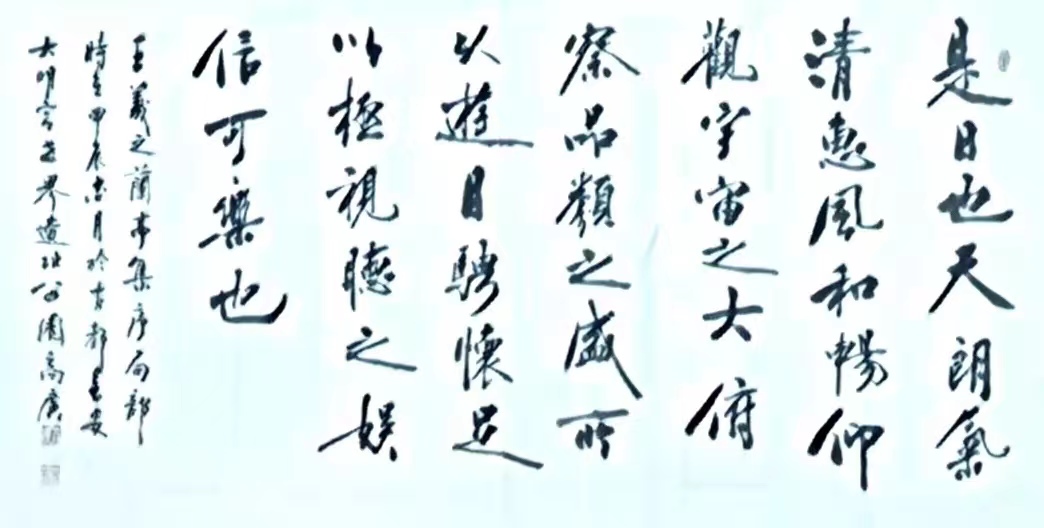 是日也天朗氣
清惠風和暢仰
觀宇宙之大俯
察品類之盛所
以遊目騁懷足
以極視聽之娛
信可樂也
王羲之蘭亭集序局部
時在甲辰月於古都長安
大明宮世界遺址公園高廣